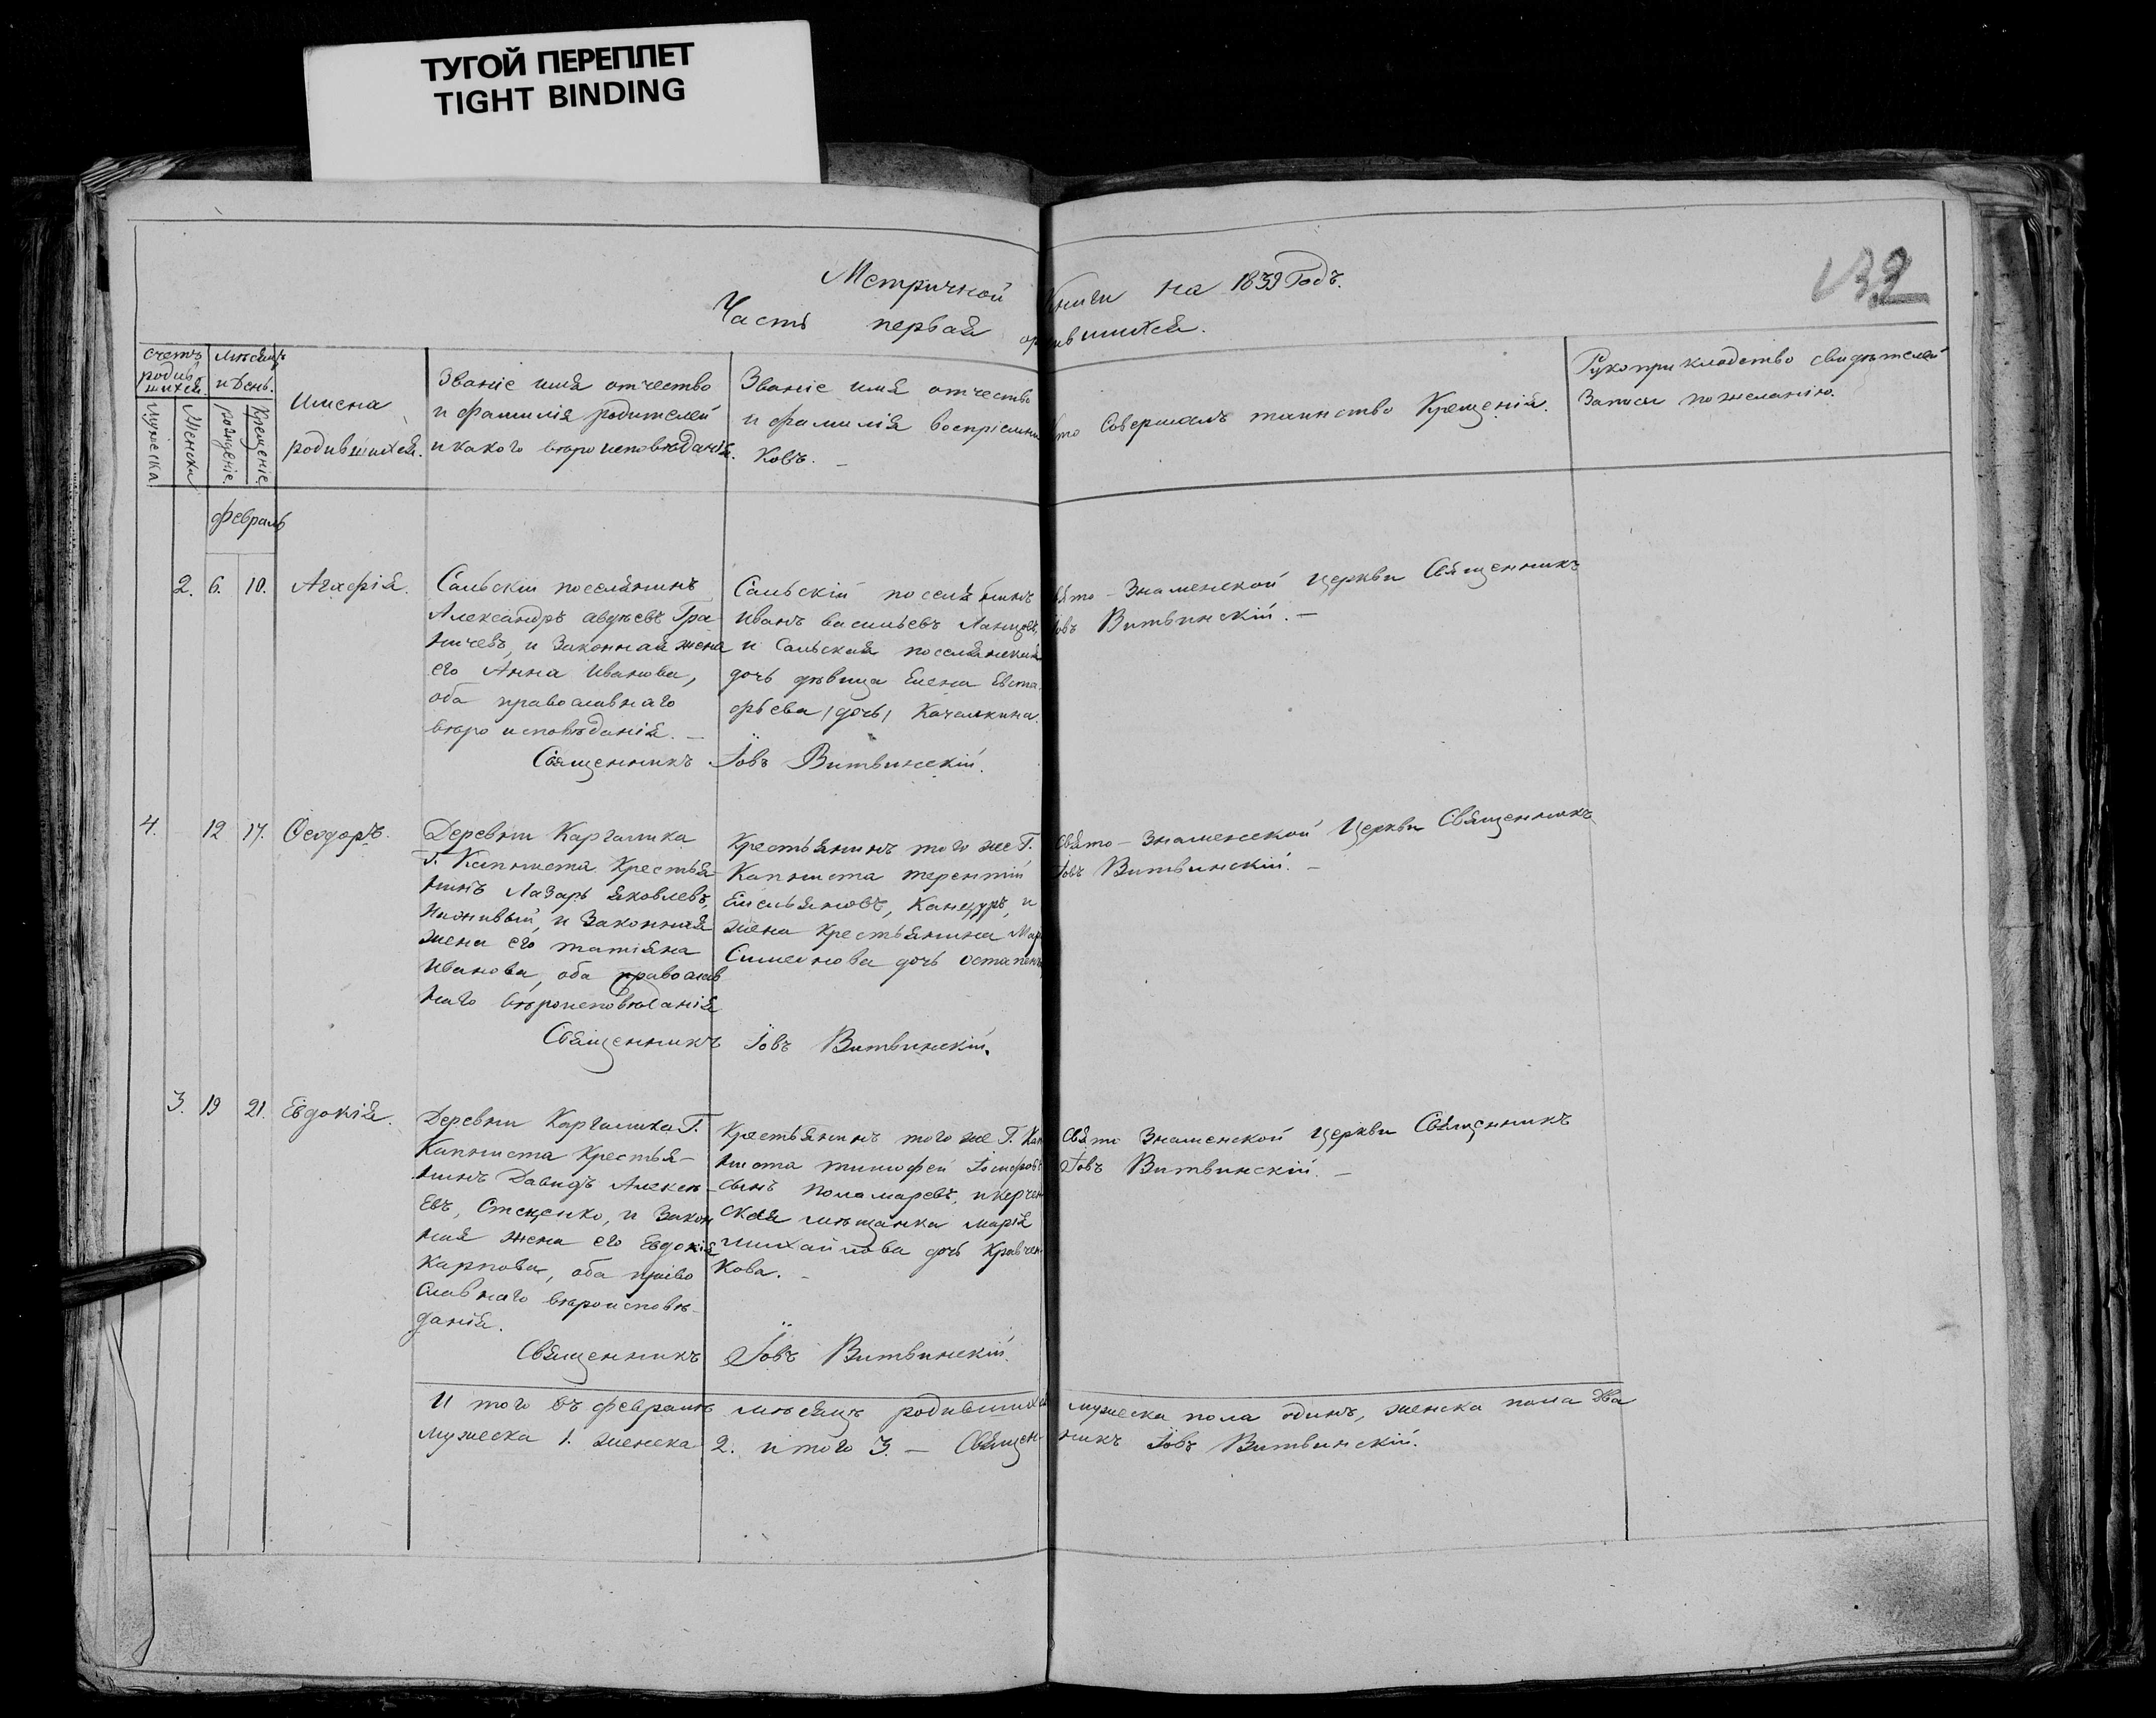 ТУГОЙ ПЕРЕПЛЕТ
TIGHT BINDING
132
Метричной Книги на 1839 Годъ.
Часть первая о родившихся.
счетъ родив шихся.
мѣсяцъ и День.
Мужеска
Женска
рожденіе
Крещеніе
Имена
родившихся.
Званіе имя отчество
и фамилія родителей
и какого вѣроисповѣданія.
Званіе имя отчество
и фамилія воспріемни
ковъ. —
Кто Совершалъ таинство Крещенія.
Рукоприкладство свидѣтелей
Записи по желанію.
февраль
2. 6. 10. Агафія.
Сальскій поселянинъ
Александръ авдѣевъ Гра
ничевъ, и Законная жена
его Анна Иванова,
оба православнаго
вѣроисповѣданія. —
Сальскій поселянинъ
Иванъ васильевъ
и Сальская поселянская
дочь дѣвица Елена Евста
фьева (дочь) Качалкина.
Свято-Знаменской Церкви Священникъ
Іовъ Витвинскій. —
Священникъ Іовъ Витвинскій.
4. 12 17. Феодоръ.
Деревни Каргалика
Г. Капниста Крестья-
нинъ Лазарь яковлевъ,
и Законная
жена его татіяна
Иванова, оба православ
наго вѣроисповѣданія
Крестьянинъ того же Г.
Капниста терентій
Емельяновъ, Канцуръ, и
жена крестьянина
Симеонова дочь
Свято-Знаменской Церкви Священникъ
Іовъ Витвинскій. —
Священникъ Іовъ Витвинскій.
3. 19 21. Евдокія.
Деревни Каргалика Г.
Капниста Крестья-
нинъ Давидъ Алексѣ-
евъ, Стеценко, и Закон
ная жена его Евдокія
Карпова, оба право
славнаго вѣроисповѣ-
данія.
Крестьянинъ того же Г. Кап
ниста тимофей Іосифовъ
сынъ поламаревъ, и керчен
ская мѣщанка марія
михайлова дочь Кравчен
кова. —
Свято Знаменской Церкви Священникъ
Іовъ Витвинскій. —
Священникъ Іовъ Витвинскій.
И того въ февралѣ мѣсяцѣ родившихся мужеска пола одинъ, женска пола два
мужеска 1. женска 2. итого 3. — Священ- никъ Іовъ Витвинскій.